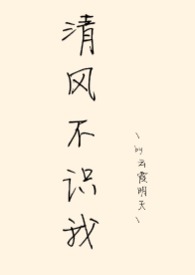 清风不识我
\by云霞明天\